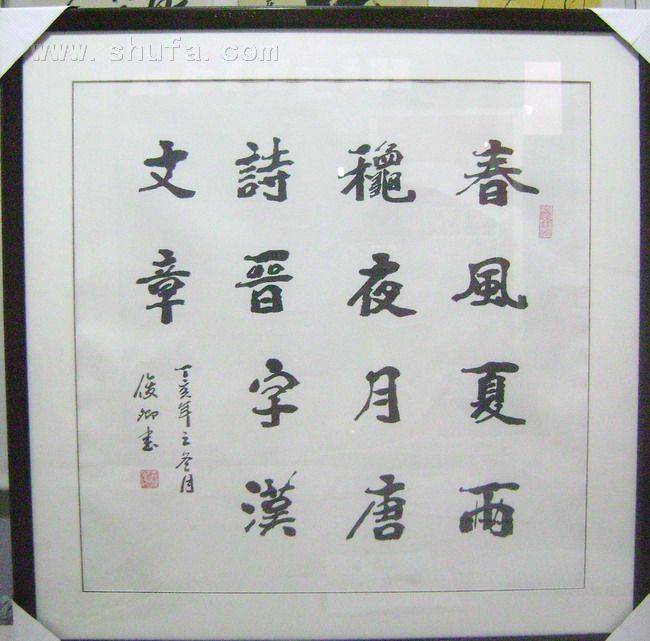 www.shufa.com
春風夏雨
穐夜月唐
詩晉字漢
文章
丁亥年之冬月
俊卿書